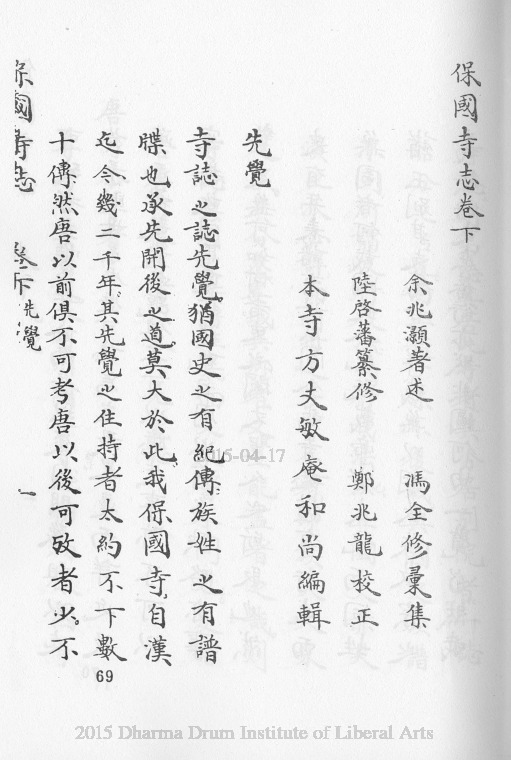 保國寺志卷下
余兆灝著述　馮全修彙集
陸啓藩纂修　鄭兆龍校正
本寺方丈敏庵和尚編輯
先覺
寺誌之誌先覺猶國史之有紀傳族姓之有譜
牒也承先開後之道莫大於此我保國寺自漢
迄今幾二千年其先覺之住持者太約不下數
十傳然唐以前俱不可考唐以後可攷者少不
保國寺志　卷下　先覺　一
69
2015-04-17
2015 Dharma Drum Institute of Liberal Arts